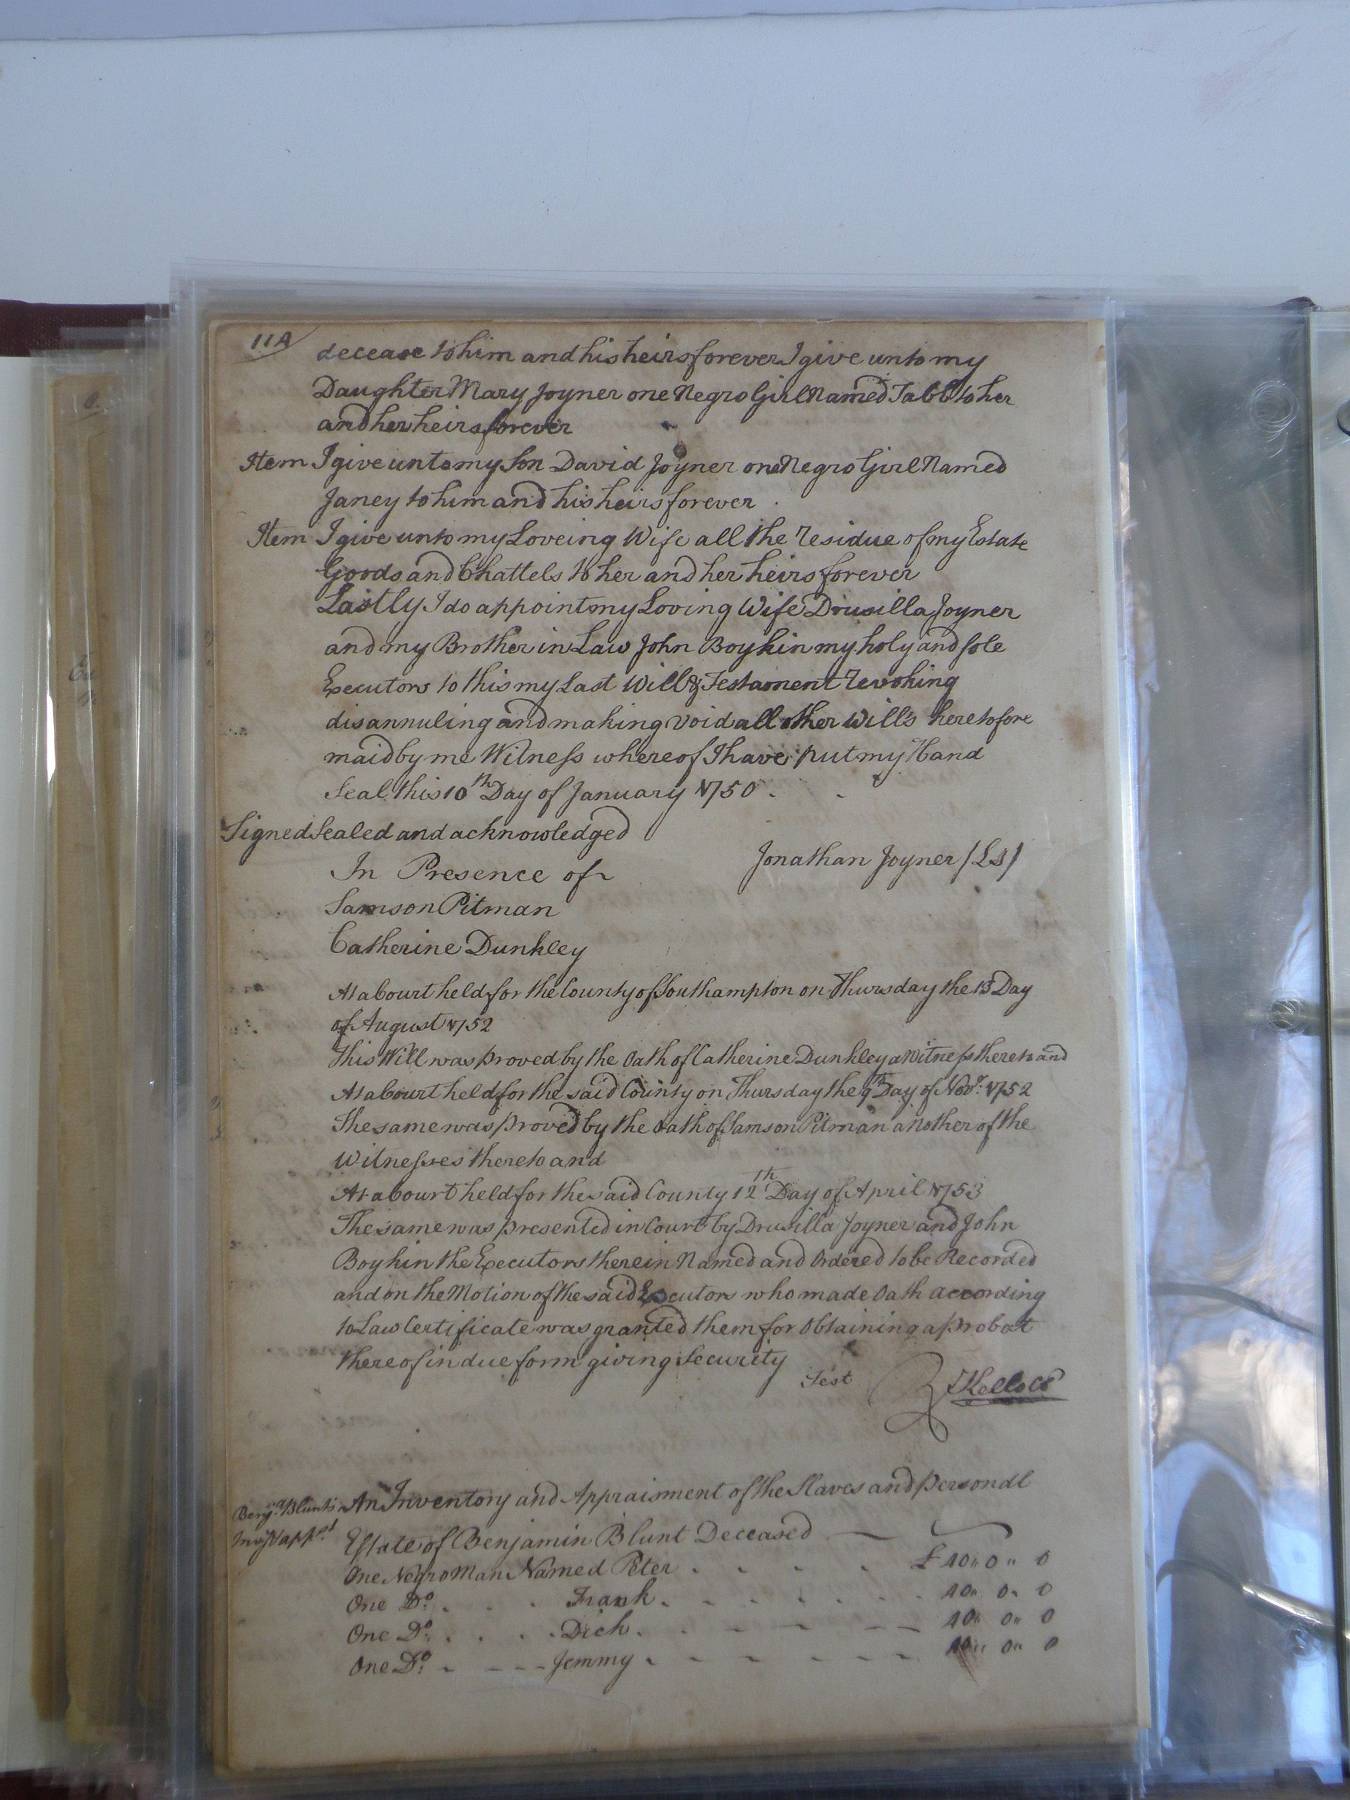 11A
decease to him and his heirs forever I give unto my
Daughter Mary Joyner one Negro Girl Named Tabb to her
and her heirs forever
Item I give unto my Son David Joyner one Negro Girl Named
Janey to him and his heirs forever
Item I give unto my Loveing Wife all the residue of my Estate
Goods and Chattels to her and her heirs forever
Lastly I do appoint my Loving Wife Drusilla Joyner
and my Brother in Law John Boykin my holy and sole
Executors to this my Last Will & Testament revoking
disannuling and making void all other Wills heretofore
maid by me Witness whereof I have put my Hand
Seal this 10th Day of January 1750
Signed Sealed and acknowledged
In Presence of
Jonathan Joyner (Ls)
Samson Pitman
Catherine Dunkley
At a Court held for the County of Southampton on Thursday the 13 Day
of August 1752
This Will was proved by the Oath of Catherine Dunkley a Witness thereto and
At a Court held for the said County on Thursday the 9th Day of Novr. 1752
The same was proved by the Oath of Samson Pitman another of the
Witnesses thereto and
At a Court held for the said County 12th Day of April 1753
The same was presented in Court by Drusilla Joyner and John
Boykin the Executors therein Named and Ordered to be Recorded
and on the Motion of the said Executors who made Oath according
to Law Certificate was granted them for Obtaining a probat
thereof in due form giving Security
Test
Kello CC
Benj.a Blunt's An Inventory and Appraisment of the Slaves and personal
Inv.y & app.t Estate of Benjamin Blunt Deceased
One Negro Man Named Peter . . . . £ 40 " 0 " 0
One Do. . . . Frank . . . . 40 " 0 " 0
One Do. . . . Dick . . . . 40 " 0 " 0
One Do. . . . Jemmy . . . . 40 " 0 " 0